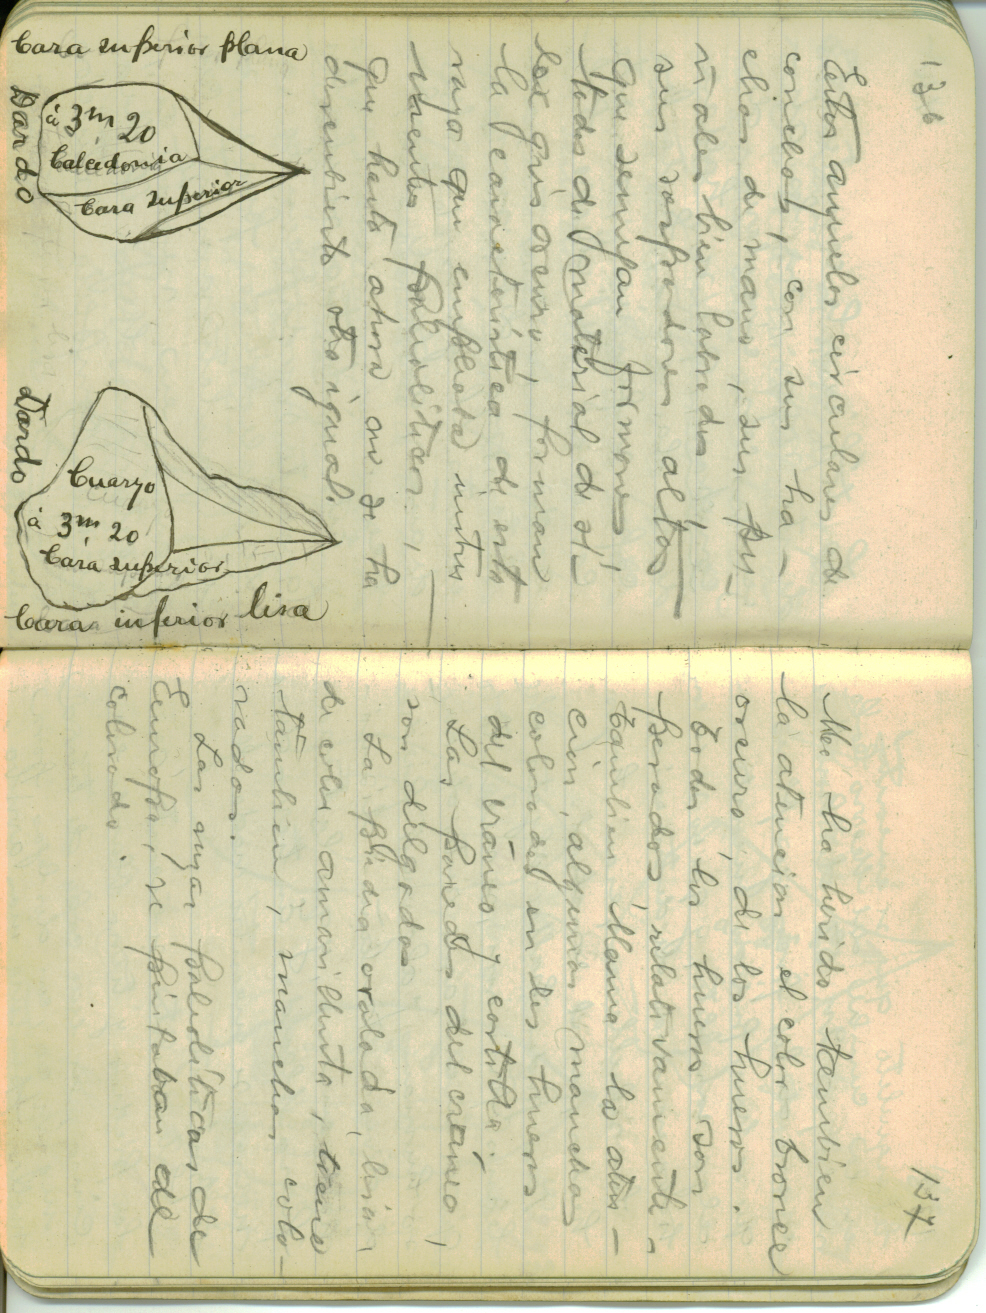 136
Estos anzuelos circulares de
conchas, con sus ha-
chas de mano, sus pu-
ñales bien labrados
sus sopladores altos
que semejan
todos de material de sí-
lex gris oscuro, forman
la característica de esta
raza que empleaba instru
mentos paleolíticos,
que hasta ahora no se ha
descubierto otro igual.
Cara superior plana
Dardo
á 3m 20
Calcedonia
Cara superior
Dardo
Cuarzo
á 3m 20
Cara superior
Cara inferior lisa
137
Me ha herido tambien
la atencion el color bronce
oscuro, de los huesos.
Todos los huesos son
pesados, relativamente.
Tambien llama la aten-
cion, algunas manchas
coloradas en los huesos
del cráneo y costilla.
Las paredes del craneo,
son delgadas
La piedra ovalada, lisa,
de color amarillenta, tiene
tambien, manchas colo-
radas.
Las razas paleolíticas de
Europa, se pintaban de
colorado.